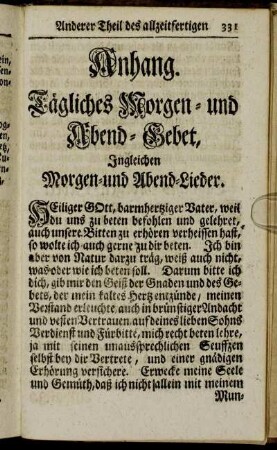 Anderer Theil des allzeitfertigen 331
Anhang.
Tägliches Morgen- und
Abend-Gebet,
Ingleichen
Morgen- und Abend-Lieder.
HEiliger GOtt, barmhertziger Vater, weil
du uns zu beten befohlen und gelehret,
auch unsere Bitten zu erhören verheissen hast,
so wolte ich auch gerne zu dir beten. Ich bin
aber von Natur darzu träg, weiß auch nicht,
was oder wie ich beten soll. Darum bitte ich
dich, gib mir den Geist der Gnaden und des Ge-
bets, der mein kaltes Hertz entzünde, meinen
Verstand erleuchte, auch in brünstiger Andacht
und vesten Vertrauen auf deines lieben Sohns
Verdienst und Fürbitte, mich recht beten lehre,
ja mit seinen unaussprechlichen Seuffzen
selbst bey dir Vertrete, und einer gnädigen
Erhörung versichere. Erwecke meine Seele
und Gemüth, daß ich nicht allein mit meinem
Mun-